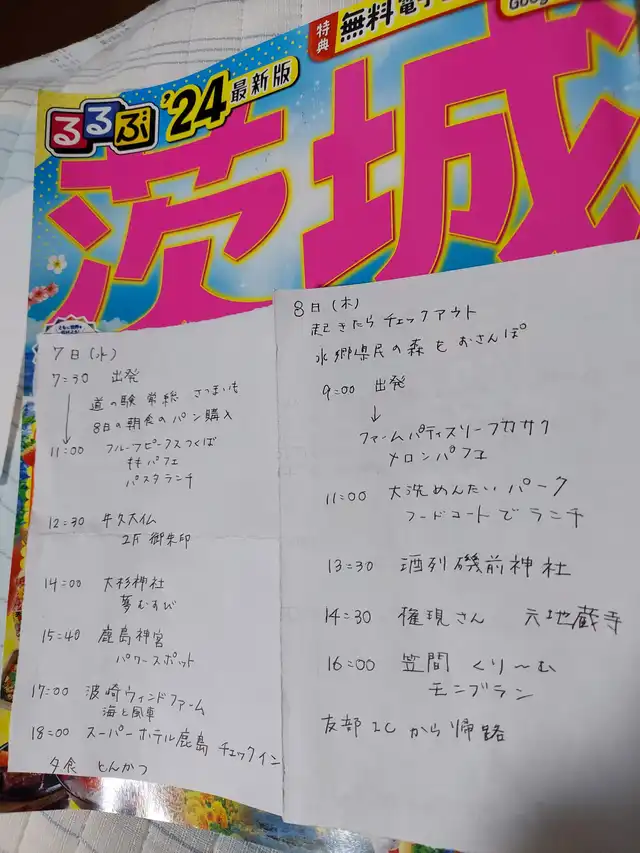 特典
無料電子
Goog
るるぶ
'24
最新版
茨城
7日(水)
7:30 出発
道の駅 常総 さつまいも
8日の朝食のパン購入
11:00 フルーツピークスつくば
ももパフェ
パスタランチ
12:30 牛久大仏
2F 御朱印
14:00 大杉神社
夢むすび
15:40 鹿島神宮
パワースポット
17:00 波崎ウィンドファーム
海と風車
18:00 スーパーホテル鹿島 チェックイン
夕食 とんかつ
8日(木)
起きたらチェックアウト
水郷県民の森をおさんぽ
9:00 出発
↓
ファームパティスリーフカサク
メロンパフェ
11:00 大洗めんたいパーク
フードコートでランチ
13:30 酒列磯前神社
14:30 権現さん 六地蔵寺
16:00 笠間 くり〜む
モンブラン
友部ICから帰路